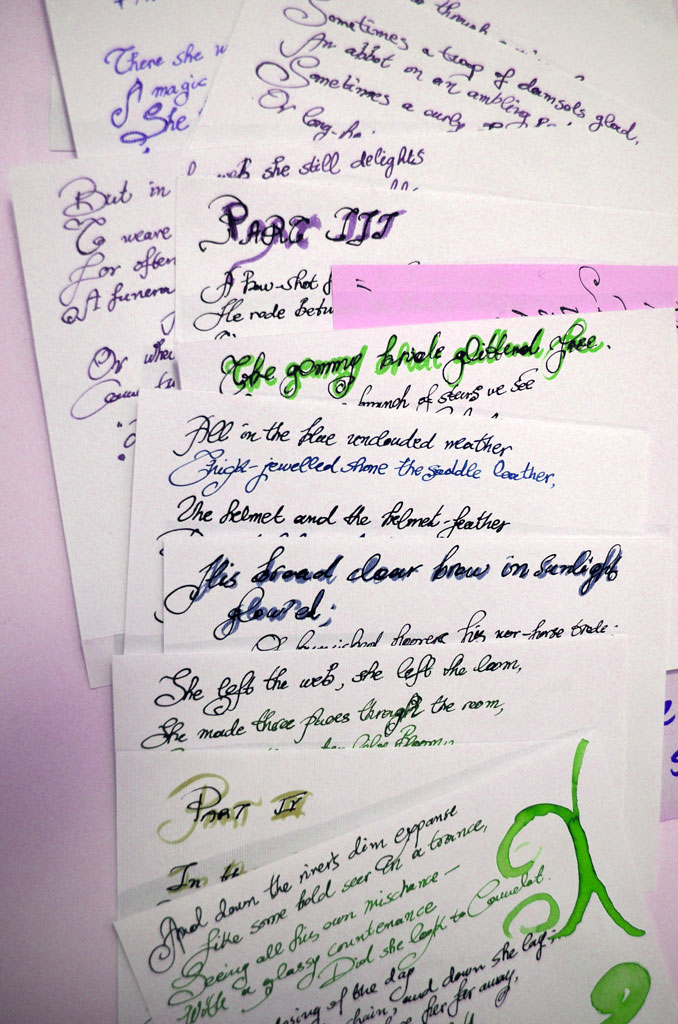 through
Sometimes a troop of damsels glad,
An abbot on an ambling
Sometimes a curly
Or long-ha
There she w
A magic
She
But in
she still delights
To weave
For often
A funera
Or whe
PART III
A Bow-shot f
He rode betw
The gemmy bridle glitter'd free.
branch of stars we see
All in the blue unclouded weather
Thick-jewelled shone the saddle leather,
The helmet and the helmet-feather
His broad clear brow in sunlight
glow'd;
On burnished hooves his war-horse trode:
She left the web, she left the loom,
She made three paces through the room,
PART IV
In
And down the river's dim expanse
Like some bold seer in a trance,
Seeing all his own mischance—
With a glassy countenance
Did she look to Camelot.
closing of the day
chain, and down she lay
her far away,